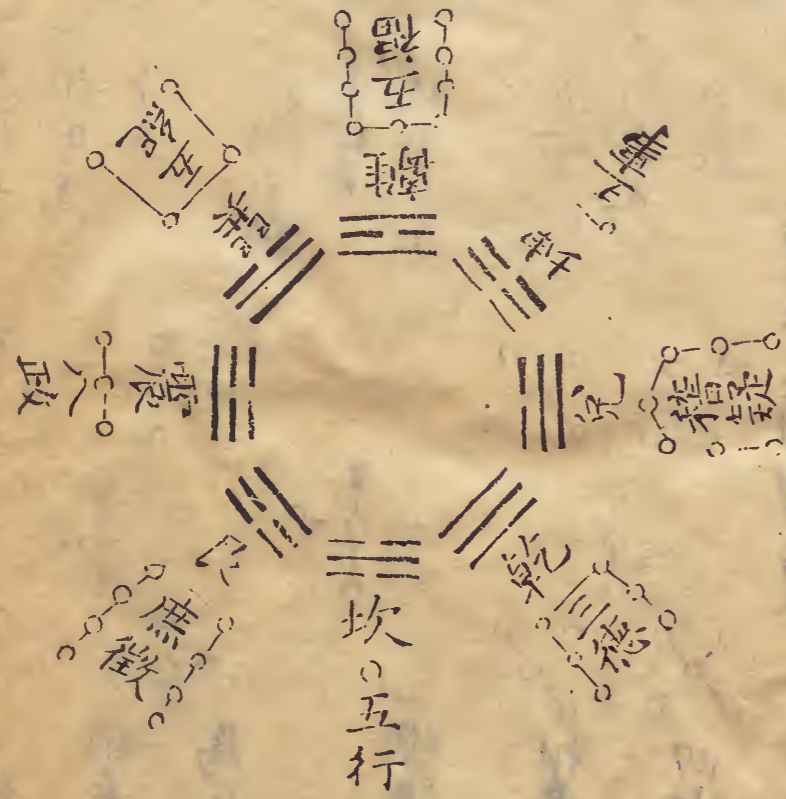 離
五福
坤
五事
兌
稽疑
乾
三德
坎
五行
艮
庶徵
震
八政
巽
五紀